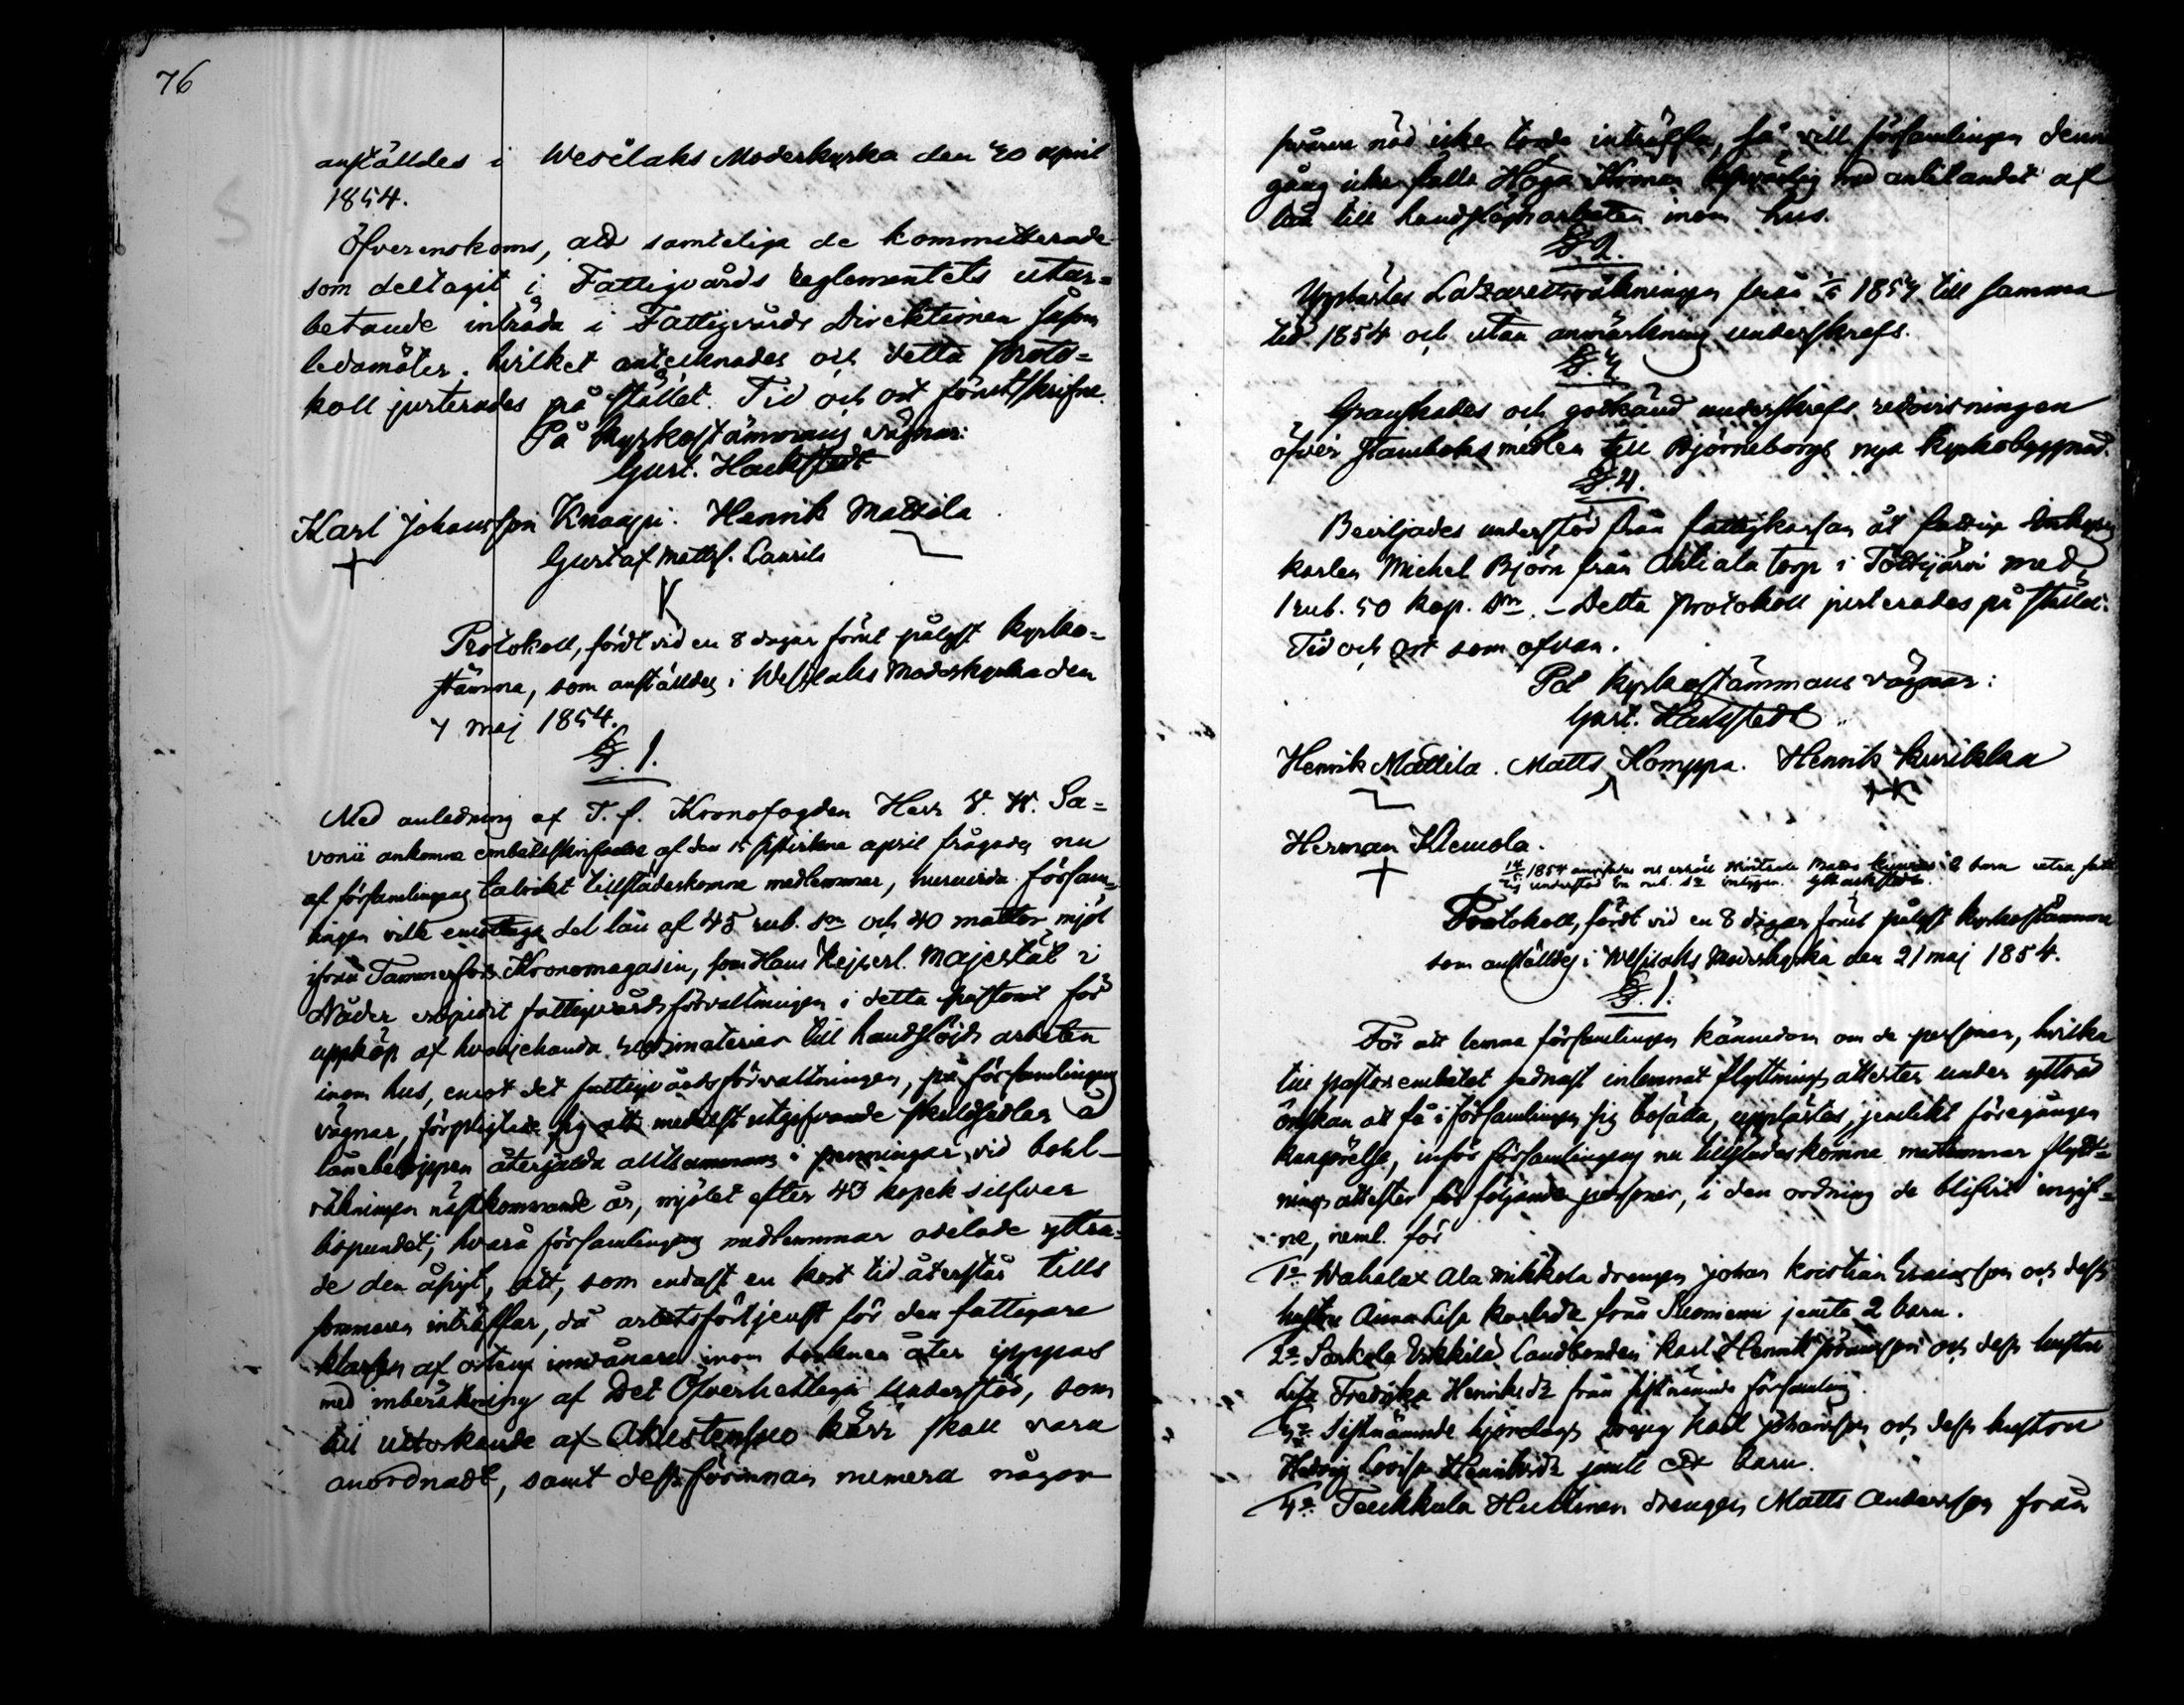 76
anställdes i Wesilaks Moderkyrka den 30 april
1854.
Öfverenskoms, att samtelige de kommitterade
som deltagit i Fattigvårds reglementets utar-
betande inträda i Fattigvårds Direktionen såsom
ledamöter. hvilket antecknades och detta proto-
koll justerades på stället. Tid och ort förutskrifne.
På Kyrkostämmans vägnar:
Gust. Hackstedt
Karl Johansson Knaapi. Henrik Mattila
Gustaf Mattss. Laurila
Protokoll, fördt vid en 8 dagar förut pålyst kyrko-
stämma, som anställdes i Wesilaks Moderkyrka den
7 maj 1854.
§. 1.
Med anledning af T. f. Kronofogden Herr W. Sa-
vonii ankomne embetsskrifvelse af den 15 sistvikne april frågades nu
af församlingens talrikt tillstädeskomne medlemmar, huruvida försam-
lingen ville emottaga det lån af 45 rub. Sm och 40 mattor mjöl
ifrån Tammerfors Kronomagasin, som Hans Kejserl. Majestät i
Nåder fattigvårdsförvaltningen i detta för
uppköp af hvarjehanda till handslöjds arbeten
inom hus, emot det fattigvårdsförvaltningen, på församlingens
vägnar, förpligtade sig att medelst utgifvande skuldsedlar å
lånebeloppen återgälda alltsammans i penningar vid bohl-
räkningen nästkommande år, mjölet efter 43 kopek silfver
lispundet; hvarå församlingens medlemmar odelade yttra-
de den åsigt, att, som endast en kort tid återstår tills
sommaren inträffar, då arbetsförtjenst för den fattigare
klassen af ortens innvånare inom socknen åter yppas
med inberäkning af Det Öfverhetliga Understöd, som
till uttorkande af kärr skall vara
anordnadt, samt dessförinnan numera någon
svårare nöd icke torde inträffa, så vill församlingen denna
gång icke falla Höga Kronan besvärlig med anlitandet af
lån till handslöjdsarbeten inom hus.
§. 2.
Upplästes Lazarettsräkningen från 1/5 1853 till samma
tid 1854 och utan anmärkning underskrefs.
§. 3.
Granskades och godkänd underskrefs redovisningen
öfver Stamboksmedlen till Björneborgs nya kyrkobyggnad.
§. 4.
Beviljades understöd från fattigkassan åt fattige
karlen Michel Björn från Ahtiala torp i Tottijärvi med
1 rub. 50 kop. Sm. - Detta protokoll justerades på stället.
Tid och ort som ofvan.
På kyrkostämmans vägnar:
Gust. Hackstedt
Henrik Mattila. Matts Komppa. Henrik Kurikka
Herman Klemola.
Protokoll, fördt vid en 8 dagar förut pålyst kyrkostämma
som anställdes i Wesilaks Moderkyrka den 21 maj 1854.
§. 1.
För att lemna församlingen kännedom om de personer, hvilka
till pastorsembetet sednast inlemnat flyttnings attester under yttrad
önskan att få i församlingen sig bosätta, upplästes, jemlikt föregången
kungörelse, inför församlingens nu tillstädeskomne medlemmar flytt-
nings attester för följande personer, i den ordning de blifvit ingif-
ne, neml. för
1o Wahalax Ala Mikkola drengen Johan Kristian och dess
hustru Anna Lisa Karlsdr från Kuoniemi jemte 2 barn.
2o Sorkola Erkkilä Landbonden Karl Henrik och dess hustru
Lisa Fredrika Henriksdr från sistnämnde församling.
3o Sistnämnde drengs Karl Johansson och dess hustru
Hedvig Lovisa Henriksdr jemte barn.
4o Toukkola Huttinen drengen Matts Andersson från